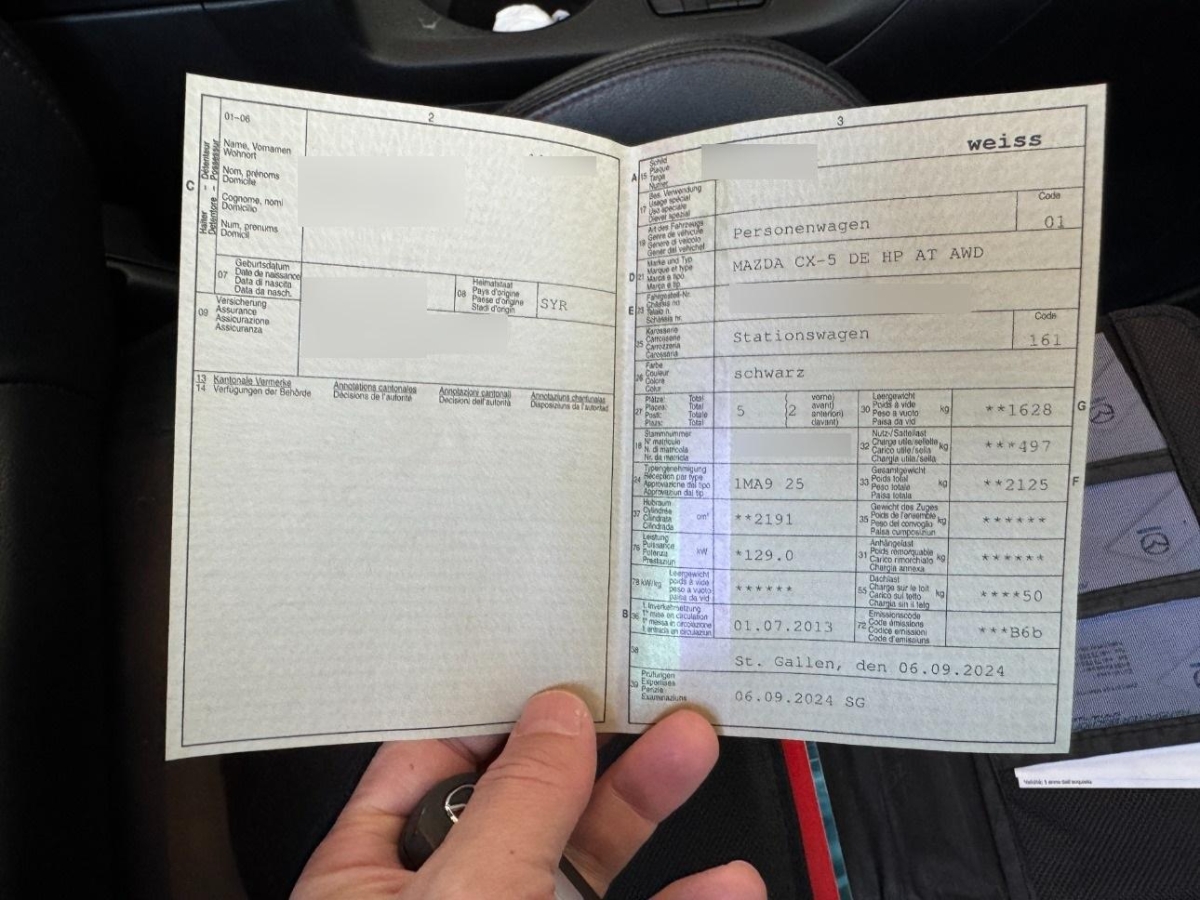 2
01-06
C
Halter Détenteur
Detentore Possessur
Name, Vornamen
Wohnort
Nom, prénoms
Domicile
Cognome, nomi
Domicilio
Num, prenums
Domicil
07
Geburtsdatum
Date de naissance
Data di nascita
Data da nasch.
08
Heimatstaat
Pays d'origine
Paese d'origine
Stadi d'origin
SYR
09
Versicherung
Assurance
Assicurazione
Assicuranza
13
14
Kantonale Vermerke
Verfügungen der Behörde
Annotations cantonales
Décisions de l'autorité
Annotazioni cantonali
Decisioni dell'autorità
Annotaziuns chantunalas
Disposiziuns da l'autoritad
3
weiss
A
15
Schild
Plaque
Targa
Numer
17
Bes. Verwendung
Usage spécial
Uso speciale
Diever spezial
19
Art des Fahrzeugs
Genre de véhicule
Genere di veicolo
Gener dal vehichel
Personenwagen
Code
01
D
21
Marke und Typ
Marque et type
Marca e tipo
Marca e tip
MAZDA CX-5 DE HP AT AWD
E
23
Fahrgestell-Nr.
Châssis no
Telaio n.
Schassis nr.
25
Karosserie
Carrosserie
Carrozzeria
Carossaria
Stationswagen
Code
161
26
Farbe
Couleur
Colore
Colur
schwarz
27
Plätze: Total
Places: Total
Posti: Totale
Plazs: Total
5
2
vorne)
avant)
anteriori)
davant)
30
Leergewicht
Poids à vide
Peso a vuoto
Paisa da vid
kg
**1628
G
18
Stammnummer
N° matricule
N. di matricola
Nr. da matricla
32
Nutz-/Sattellast
Charge utile/sellette
Carico utile/sella
Chargia utila/sella
kg
***497
24
Typengenehmigung
Réception par type
Approvazione del tipo
Approvaziun dal tip
1MA9 25
33
Gesamtgewicht
Poids total
Peso totale
Paisa totala
kg
**2125
F
37
Hubraum
Cylindrée
Cilindrata
Cilindrada
cm³
**2191
35
Gewicht des Zuges
Poids de l'ensemble
Peso del convoglio
Paisa cumposiziun
kg
******
76
Leistung
Puissance
Potenza
Prestaziun
kW
*129.0
31
Anhängelast
Poids remorquable
Carico rimorchiato
Chargia annexa
kg
******
78 kW/kg
Leergewicht
poids à vide
peso a vuoto
paisa da vid
******
55
Dachlast
Charge sur le toit
Carico sul tetto
Chargia sin il tetg
kg
****50
B
36
1. Inverkehrsetzung
1re mise en circulation
1a messa in circolazione
1. entrada en circulaziun
01.07.2013
72
Emissionscode
Code émissions
Codice emissioni
Code d'emissiuns
***B6b
38
St. Gallen, den 06.09.2024
39
Prüfungen
Expertises
Perizie
Examinaziuns
06.09.2024 SG
Validità: 1 anno dall'acquisto